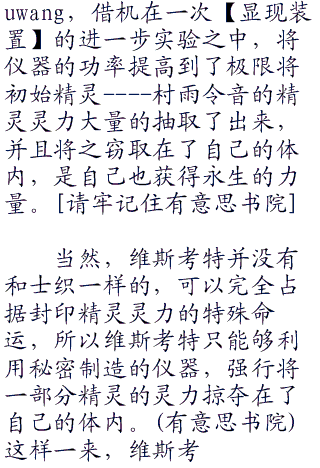 uwang，借机在一次【显现装
置】的进一步实验之中，将
仪器的功率提高到了极限将
初始精灵----村雨令音的精
灵灵力大量的抽取了出来，
并且将之窃取在了自己的体
内，是自己也获得永生的力
量。[请牢记住有意思书院]
当然，维斯考特并没有
和士织一样的，可以完全占
据封印精灵灵力的特殊命
运，所以维斯考特只能够利
用秘密制造的仪器，强行将
一部分精灵的灵力掠夺在了
自己的体内。(有意思书院)
这样一来，维斯考